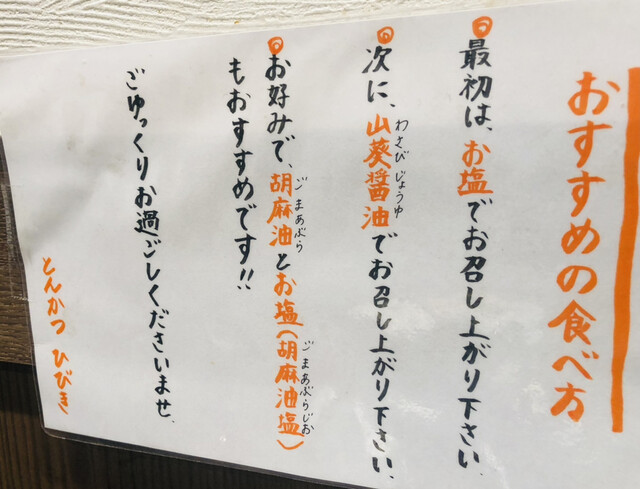 おすすめの食べ方
最初は、お塩でお召し上がり下さい、
次に、山葵醤油でお召し上がり下さい、
わさび じょうゆ
お好みで、胡麻油とお塩(胡麻油塩)
ごまあぶら
ごまあぶらじお
もおすすめです!!
ごゆっくりお過ごしくださいませ、
とんかつ ひびき